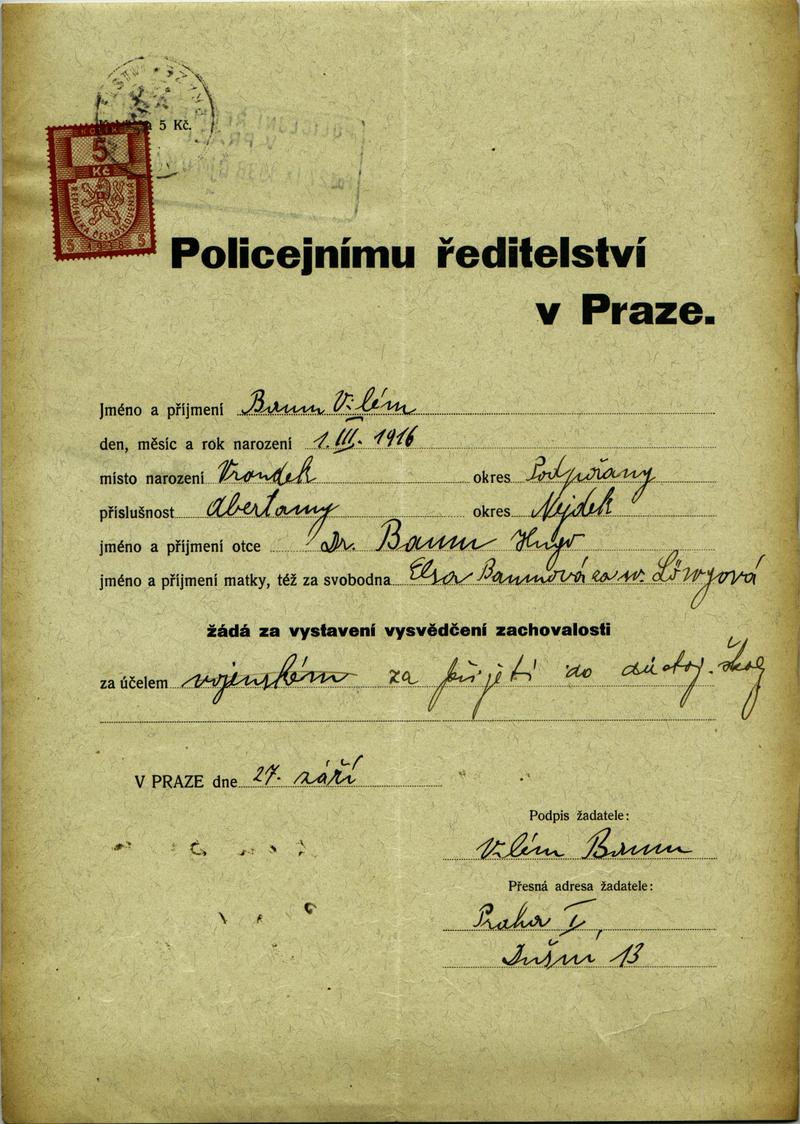 5 Kč.
KOLEK
5
Kč
REPUBLIKA ČESKOSLOVENSKÁ
5 1938 5
Policejnímu ředitelství
v Praze.
Jméno a příjmení Baum Vilém
den, měsíc a rok narození 1. III. 1916
místo narození okres Podpořany
příslušnost Abertamy okres Nejdek
jméno a příjmení otce Dr. Baum Hugo
jméno a příjmení matky, též za svobodna Elsa Baumová
žádá za vystavení vysvědčení zachovalosti
za účelem vojenském za přijetí do důstoj. školy
V PRAZE dne 27. září
Podpis žadatele:
Vilém Baum
Přesná adresa žadatele:
Praha I,
Dušní 13